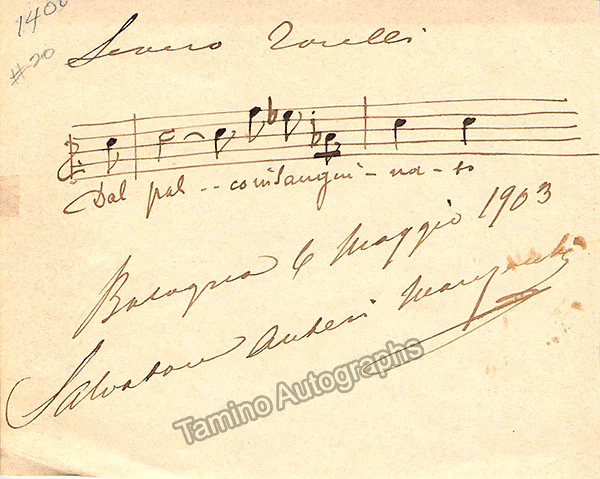 1400
#20
Severo Torelli
Dal pal -- co insangui - na - to
Bologna 6 Maggio 1903
Salvatore Auteri Manzocchi
Tamino Autographs